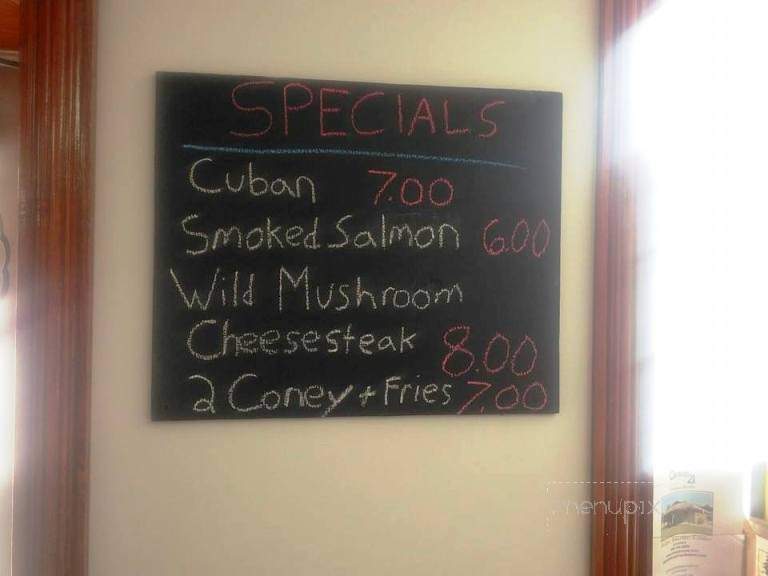 SPECIALS
Cuban 7.00
Smoked Salmon 6.00
Wild Mushroom
Cheesesteak 8.00
2 Coney + Fries 7.00
menupix